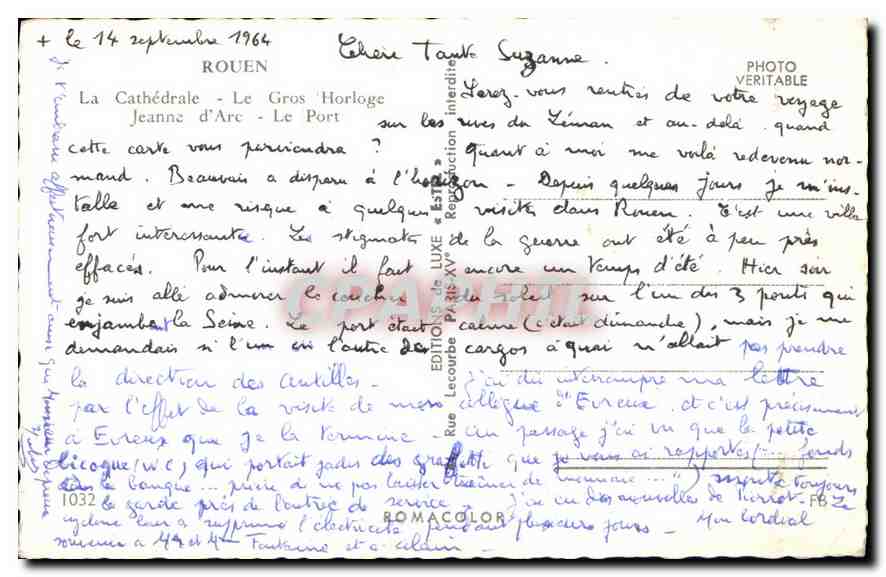 + le 14 septembre 1964
Chère Tante Suzanne.
ROUEN
PHOTO
VERITABLE
La Cathédrale - Le Gros Horloge
Jeanne d'Arc - Le Port
Serez-vous rentrés de votre voyage
sur les rives du Léman et au-delà quand
cette carte vous parviendra ? Quant à moi me voilà redevenu nor-
mand. Beauvais a disparu à l'horizon - Depuis quelques jours je m'ins-
talle et me risque à quelques visites dans Rouen. C'est une ville
fort intéressante. Les stigmates de la guerre ont été à peu près
effacés. Pour l'instant il fait encore un temps d'été. Hier soir
je suis allé admirer le coucher du soleil sur l'un des 3 ponts qui
enjambent la Seine. Le port était calme (c'était dimanche), mais je me
demandais si l'un ou l'autre des cargos à quai n'allait pas prendre
la direction des Antilles - j'ai dû interrompre ma lettre
par l'effet de la visite de mon collègue d'Evreux et c'est précisément
à Evreux que je la termine - Au passage j'ai vu que la petite
bicoque (WC) qui portait jadis des graffiti que je vous ai rapportés (... fonds
de la banque ... prière de ne pas laisser de monnaie ...") monte toujours
la garde près de l'autre de service - j'ai eu des nouvelles de Pierrot - Le
cyclone leur a supprimé l'électricité pendant plusieurs jours - Mon cordial
souvenir à Mr et Mme Fontaine et à Alain -
Je t'embrasse affectueusement ainsi que
EDITIONS de LUXE « ESTEL »
Rue Lecourbe PARIS-XVe Reproduction interdite
CPAPHIL
1032
ROMACOLOR
FB